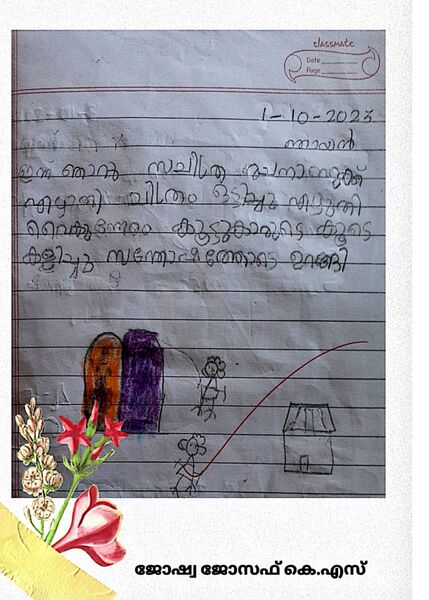 classmate
Date
Page
1-10-2023
ഞായർ
ഇന്ന് ഞാനും സചിത്ര രചനാബുക്ക്
എഴുതി ചിത്രം ഒട്ടിച്ചു എഴുതി
വൈകുന്നേരം കൂട്ടുകാരുടെ കൂടെ
കളിച്ചു സന്തോഷത്തോടെ ഉറങ്ങി
ജോഷ്വ ജോസഫ് കെ.എസ്